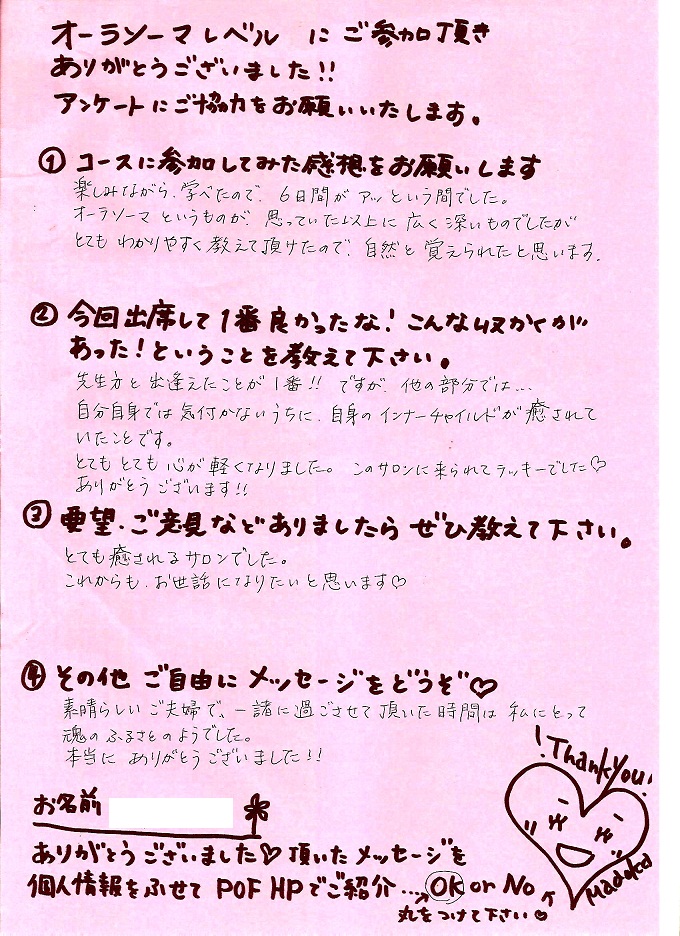 オーラソーマレベル にご参加頂き
ありがとうございました!!
アンケートにご協力をお願いいたします。
① コースに参加してみた感想をお願いします
楽しみながら、学べたので、6日間が アッ という間でした。
オーラソーマ というものが、思っていた以上に 広く 深いものでしたが
とても わかりやすく 教えて頂けたので、自然と 覚えられたと思います。
② 今回出席して1番良かったな!こんな収かくが
あった!ということを教えて下さい。
先生方と 出逢えたことが 1番!! ですが、他の部分では…
自分自身では 気付かないうちに、自身の インナーチャイルドが 癒されて
いたことです。
とても とても 心が 軽くなりました。 このサロンに来られてラッキーでした♡
ありがとうございます!!
③ 要望、ご意見などありましたら ぜひ教えて下さい。
とても癒されるサロンでした。
これからも、お世話になりたいと思います♡
④ その他 ご自由に メッセージをどうぞ♡
素晴らしい ご夫婦で、一緒に過ごさせて 頂いた 時間は 私にとって
魂の ふるさとのようでした。
本当に ありがとうございました!!
!ThankYou!
お名前
ありがとうございました♡ 頂いた メッセージを
個人情報をふせて POF HPでご紹介…OK or No
Madoka
丸をつけて下さい♡